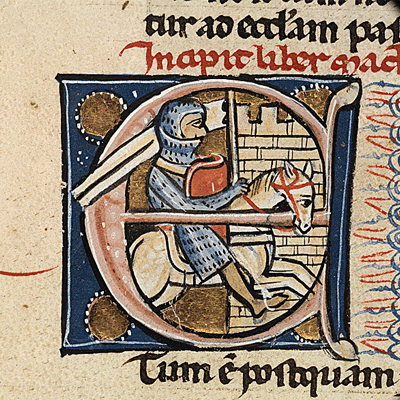 tur ad eccłam pas
Incipit liber mach
E
Tum ē postquam